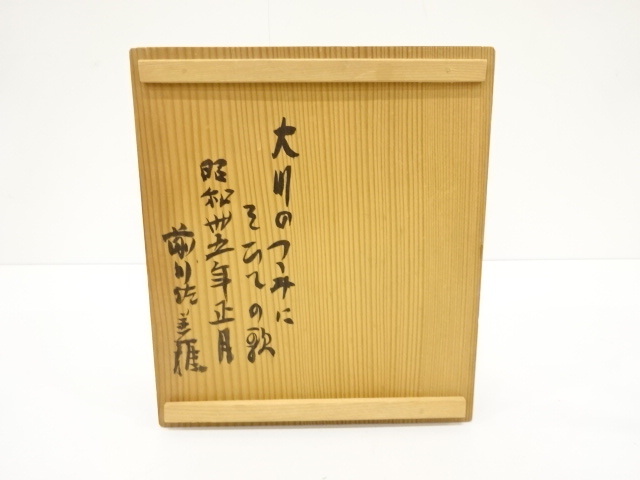 大川のつゝみに
そひての歌
昭和卅五年正月
前川佐美雄